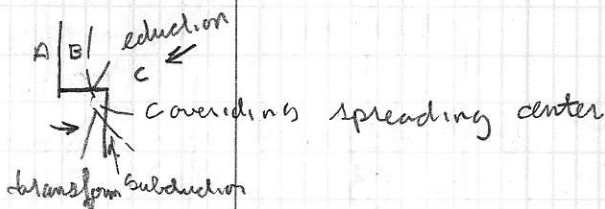 eduction
A B
C
coveriding spreading center
transform subduction